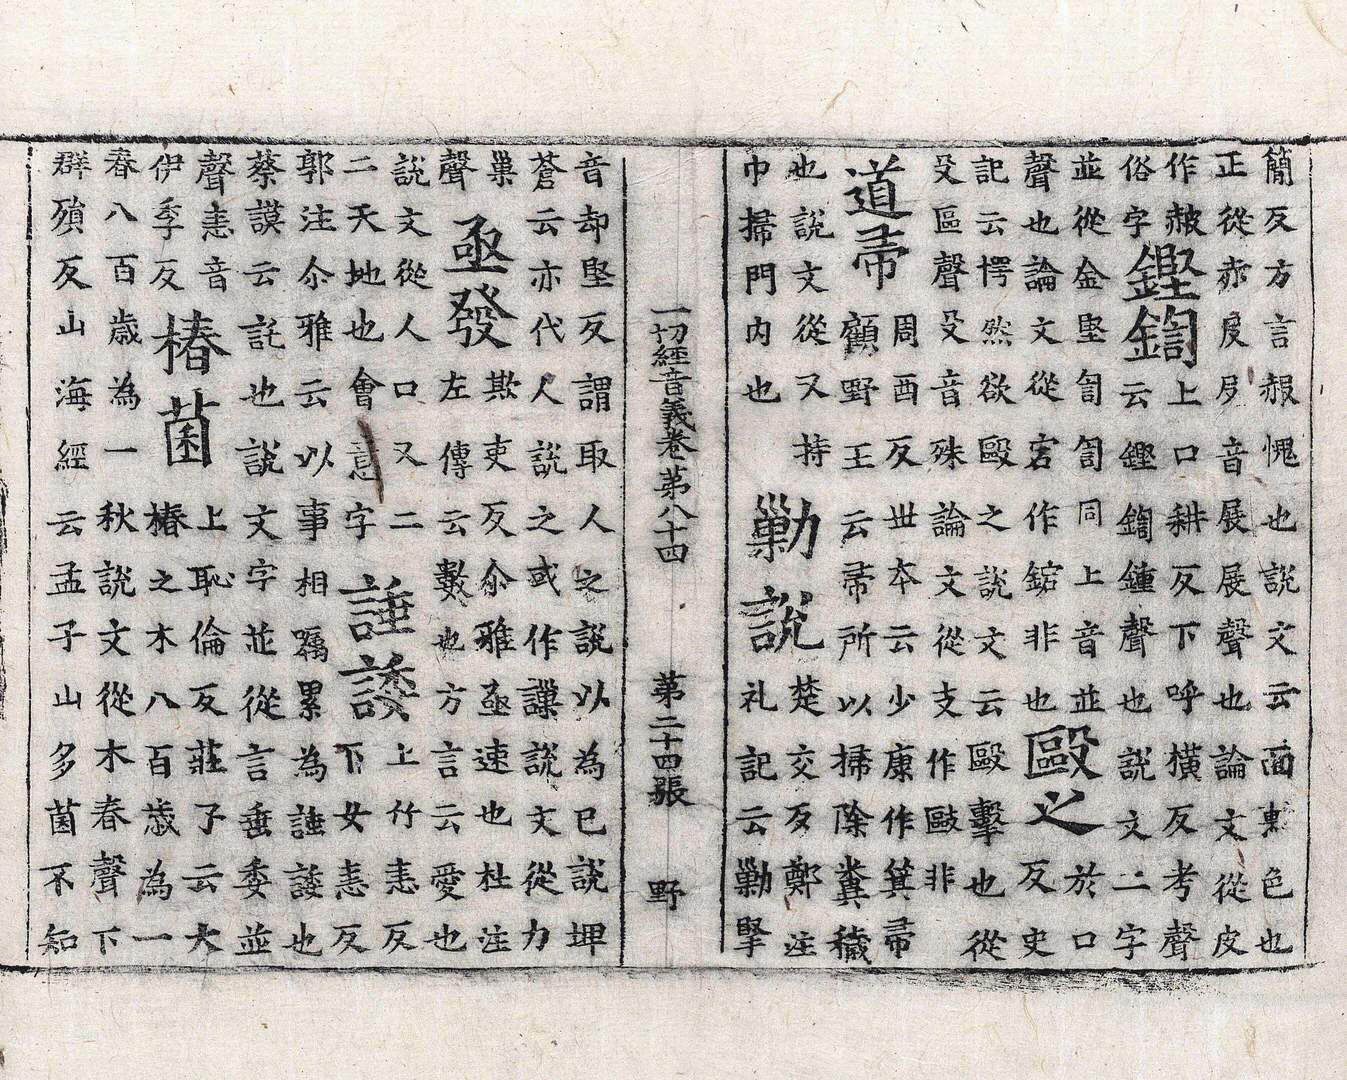 簡反方言赧愧也說文云面色也
正從赤𠬝𠬝音展展聲也論文從皮
作赧上口耕反下呼橫反考聲
俗字鏗鍧云鏗鍧鍾聲也說文二字
並從金堅訇訇同上音並於口
聲也論文從宕作非也毆之反史
記云愕然欲毆之說文云毆擊也從
殳區聲殳音殊論文從支作敺非
道帚周酉反世本云少康作箕帚
顧野王云帚所以掃除糞穢
也說文從又持勦說楚交反鄭注
巾掃門内也礼記云勦掔
一切經音義卷第八十四　第二十四張　野
音却堅反謂取人之說以為已說埤
蒼云亦代人說之或作謙說文從力
巢欺吏反尒雅亟速也杜注
聲亟發左傳云數也方言云愛也
說文從人口又二諈諉上竹恚反
二天地也會意字下女恚反
郭注尒雅云以事相嘱累為諈諉也
蔡謨云託也說文字並從言垂委並
聲恚音椿菌上恥倫反莊子云大
伊季反椿之木八百歲為一
春八百歲為一秋說文從木春聲下
群殞反山海經云孟子山多菌不知